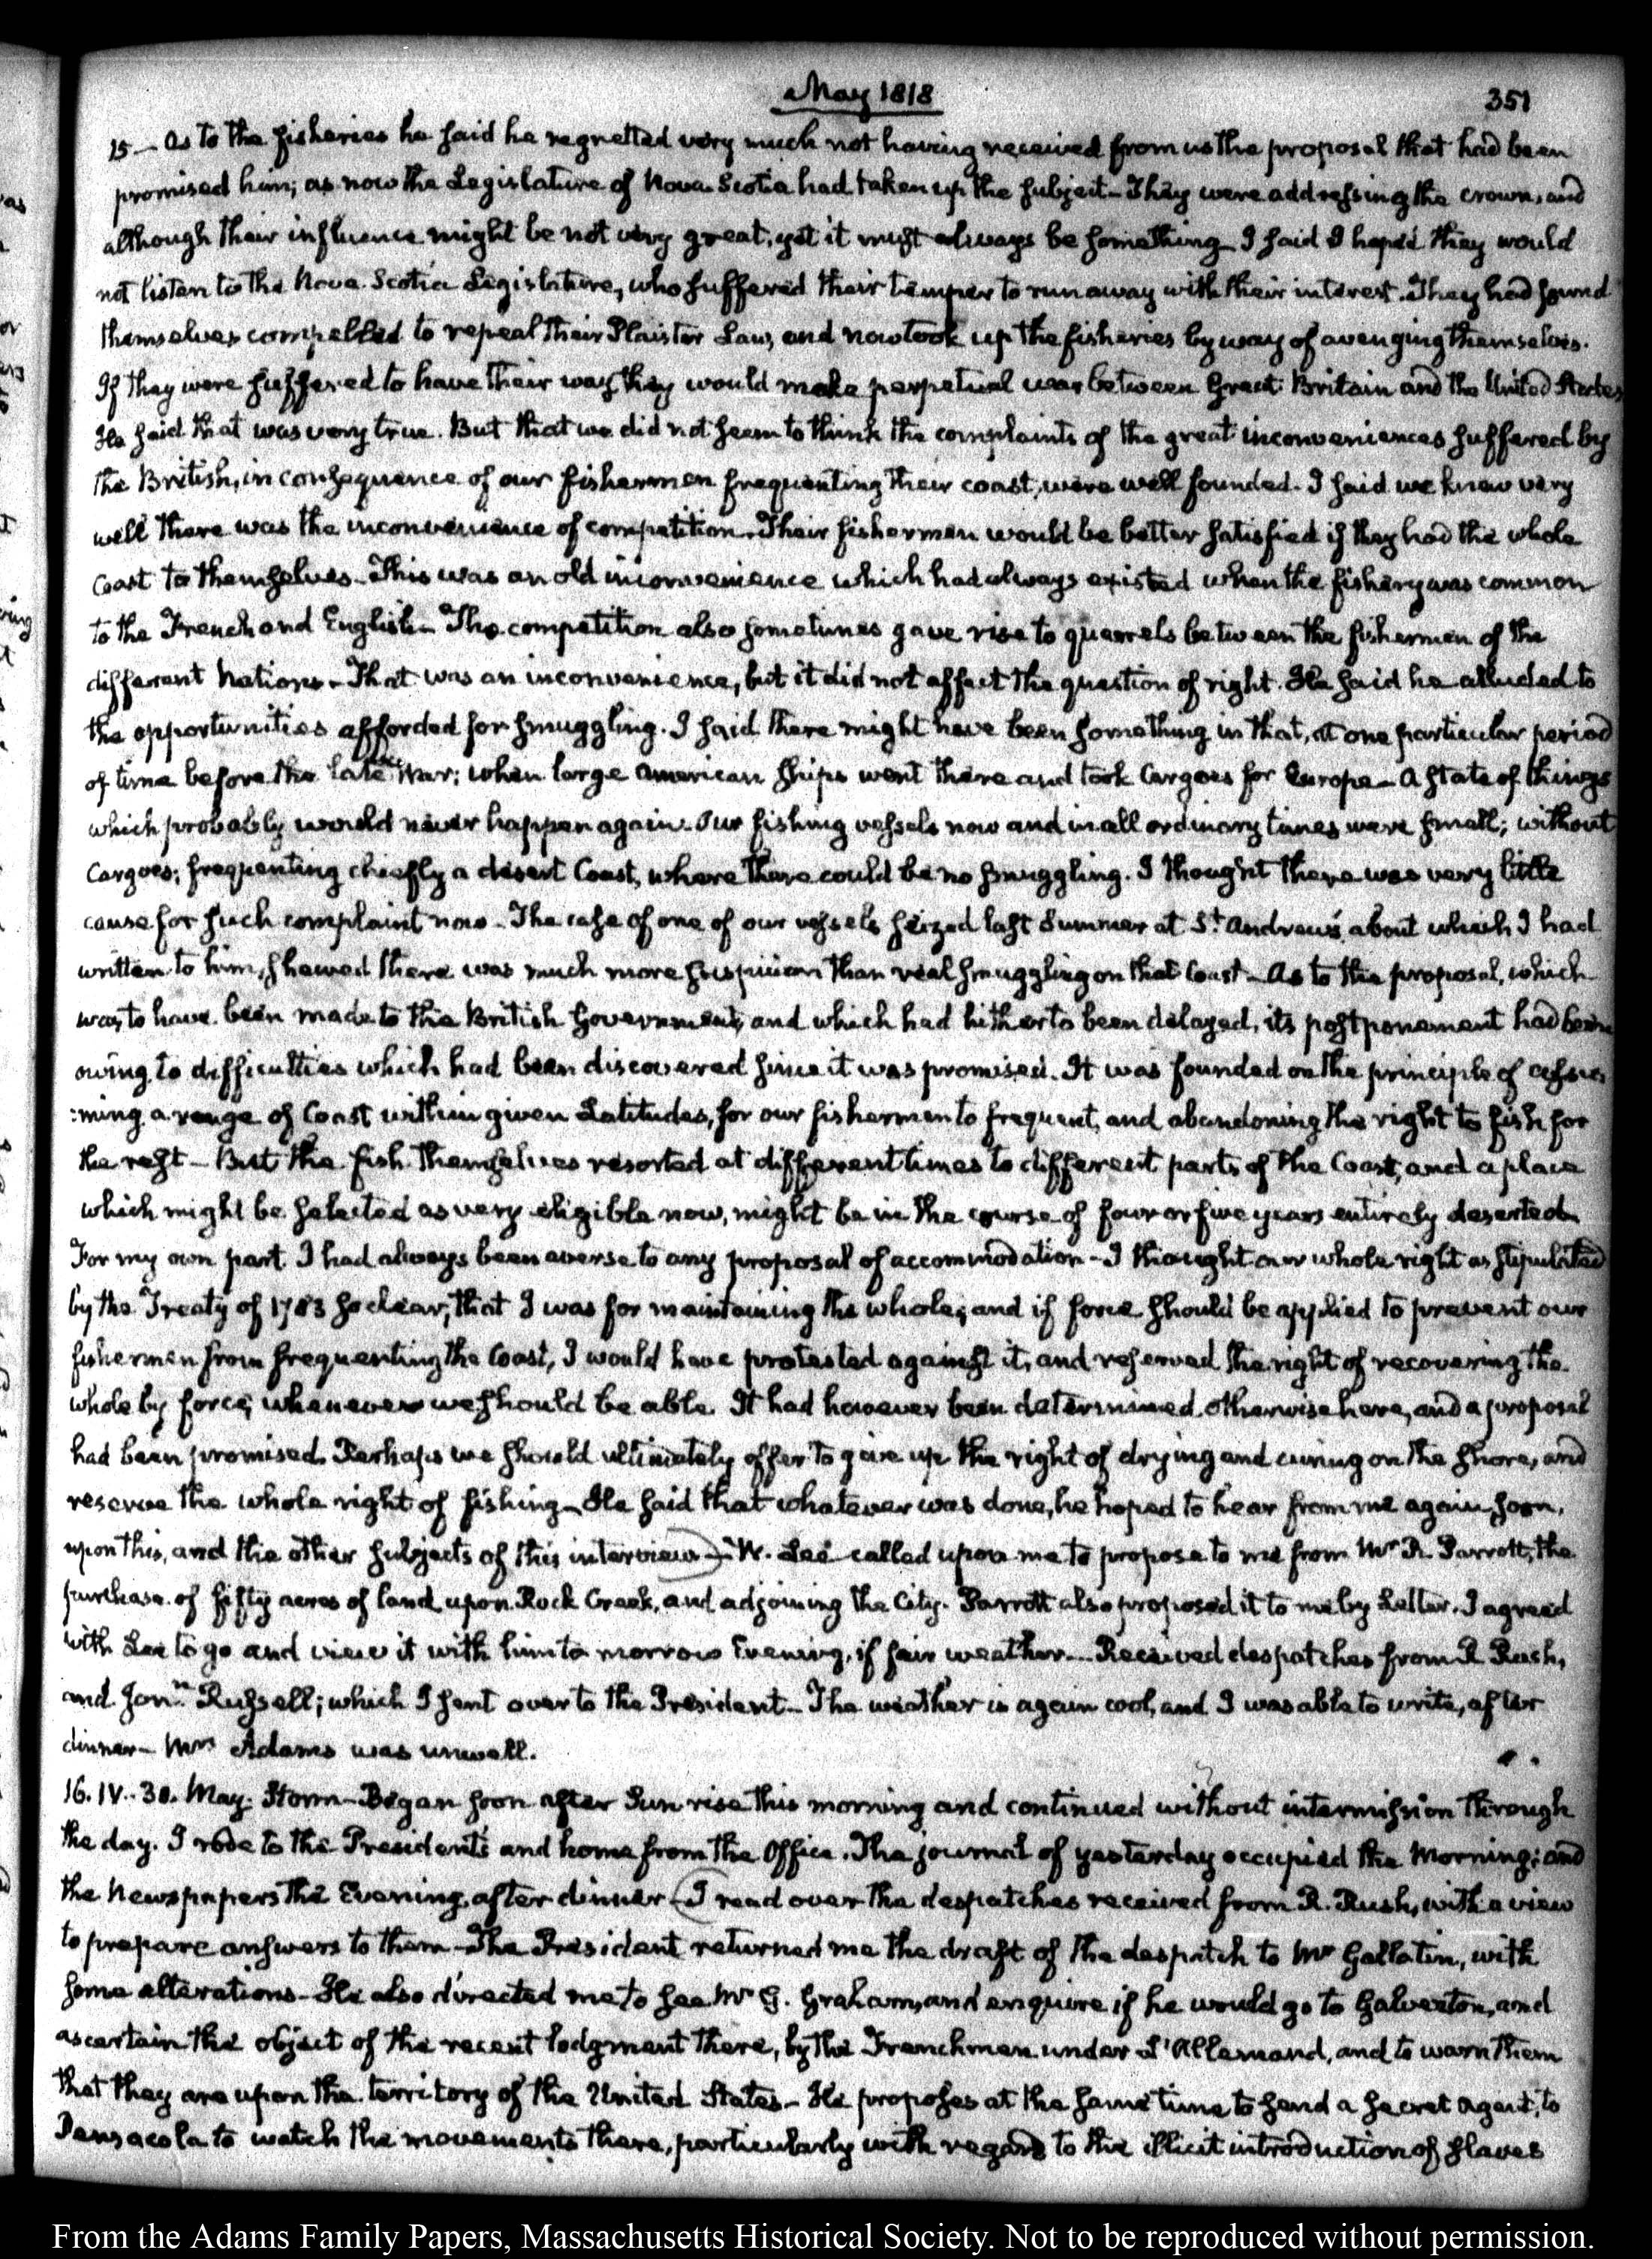 May 1818
351
15 — As to the fisheries he said he regretted very much not having received from us the proposal that had been
promised him; as now the Legislature of Nova-Scotia had taken up the subject — They were addressing the crown, and
although their influence might be not very great, yet it must always be something — I said I hoped they would
not listen to the Nova-Scotia Legislature, who suffered their temper to run away with their interest. They had found
themselves compelled to repeal their Plaister Law, and now took up the fisheries by way of avenging themselves.
If they were suffered to have their way they would make perpetual war between Great-Britain and the United States,
He said that was very true. But that we did not seem to think the complaints of the great inconveniences suffered by
the British, in consequence of our fishermen frequenting their coast, were well founded. I said we knew very
well there was the inconvenience of competition. Their fishermen would be better satisfied if they had the whole
Coast to themselves — This was an old inconvenience which had always existed when the fishery was common
to the French and English — The competition also sometimes gave rise to quarrels between the fishermen of the
different Nations — That was an inconvenience, but it did not affect the question of right. He said he alluded to
the opportunities afforded for smuggling. I said there might have been something in that, at one particular period
of time before the late War; when large American ships went there and took Cargoes for Europe — A state of things
which probably would never happen again. Our fishing vessels now and in all ordinary times were small; without
Cargoes; frequenting chiefly a desert Coast, where there could be no smuggling. I thought there was very little
cause for such complaint now — The case of one of our vessels seized last Summer at St. Andrew's about which I had
written to him, shewed there was much more suspicion than real smuggling on that Coast — As to the proposal, which
was to have been made to the British Government, and which had hitherto been delayed, its postponement had been
owing to difficulties which had been discovered since it was promised. It was founded on the principle of assu-
:ming a range of Coast within given Latitudes, for our fishermen to frequent, and abandoning the right to fish for
the rest — But the fish themselves resorted at different times to different parts of the Coast, and a place
which might be selected as very eligible now, might be in the course of four or five years entirely deserted.
For my own part I had always been averse to any proposal of accommodation — I thought our whole right as stipulated
by the Treaty of 1783 so clear, that I was for maintaining the whole; and if force should be applied to prevent our
fishermen from frequenting the Coast, I would have protested against it, and reserved the right of recovering the
whole by force, whenever we should be able. It had however been determined otherwise here, and a proposal
had been promised. Perhaps we should ultimately offer to give up the right of drying and curing on the shore, and
reserve the whole right of fishing — He said that whatever was done, he hoped to hear from me again soon,
upon this, and the other subjects of this interview — W. Lee called upon me to propose to me from Mr R. Parrott, the
purchase of fifty acres of land upon Rock Creek, and adjoining the City. Parrott also proposed it to me by Letter. I agreed
with Lee to go and view it with him to morrow Evening, if fair weather — Received despatches from R Rush,
and Jonn. Russell; which I sent over to the President — The weather is again cool, and I was able to write, after
dinner — Mrs Adams was unwell.
16. IV. 30. May. Storm — Began soon after Sun rise this morning and continued without intermission through
the day. I rode to the President's and home from the Office. The journal of yesterday occupied the Morning; and
the Newspapers the Evening, after dinner — I read over the despatches received from R. Rush, with a view
to prepare answers to them — The President returned me the draft of the despatch to Mr Gallatin, with
some alterations — He also directed me to see Mr G. Graham, and enquire if he would go to Galveston, and
ascertain the object of the recent lodgment there, by the Frenchmen under L'Allemand, and to warn them
that they are upon the territory of the United States — He proposes at the same time to send a secret agent, to
Pensacola to watch the movements there, particularly with regard to the illicit introduction of slaves
From the Adams Family Papers, Massachusetts Historical Society. Not to be reproduced without permission.